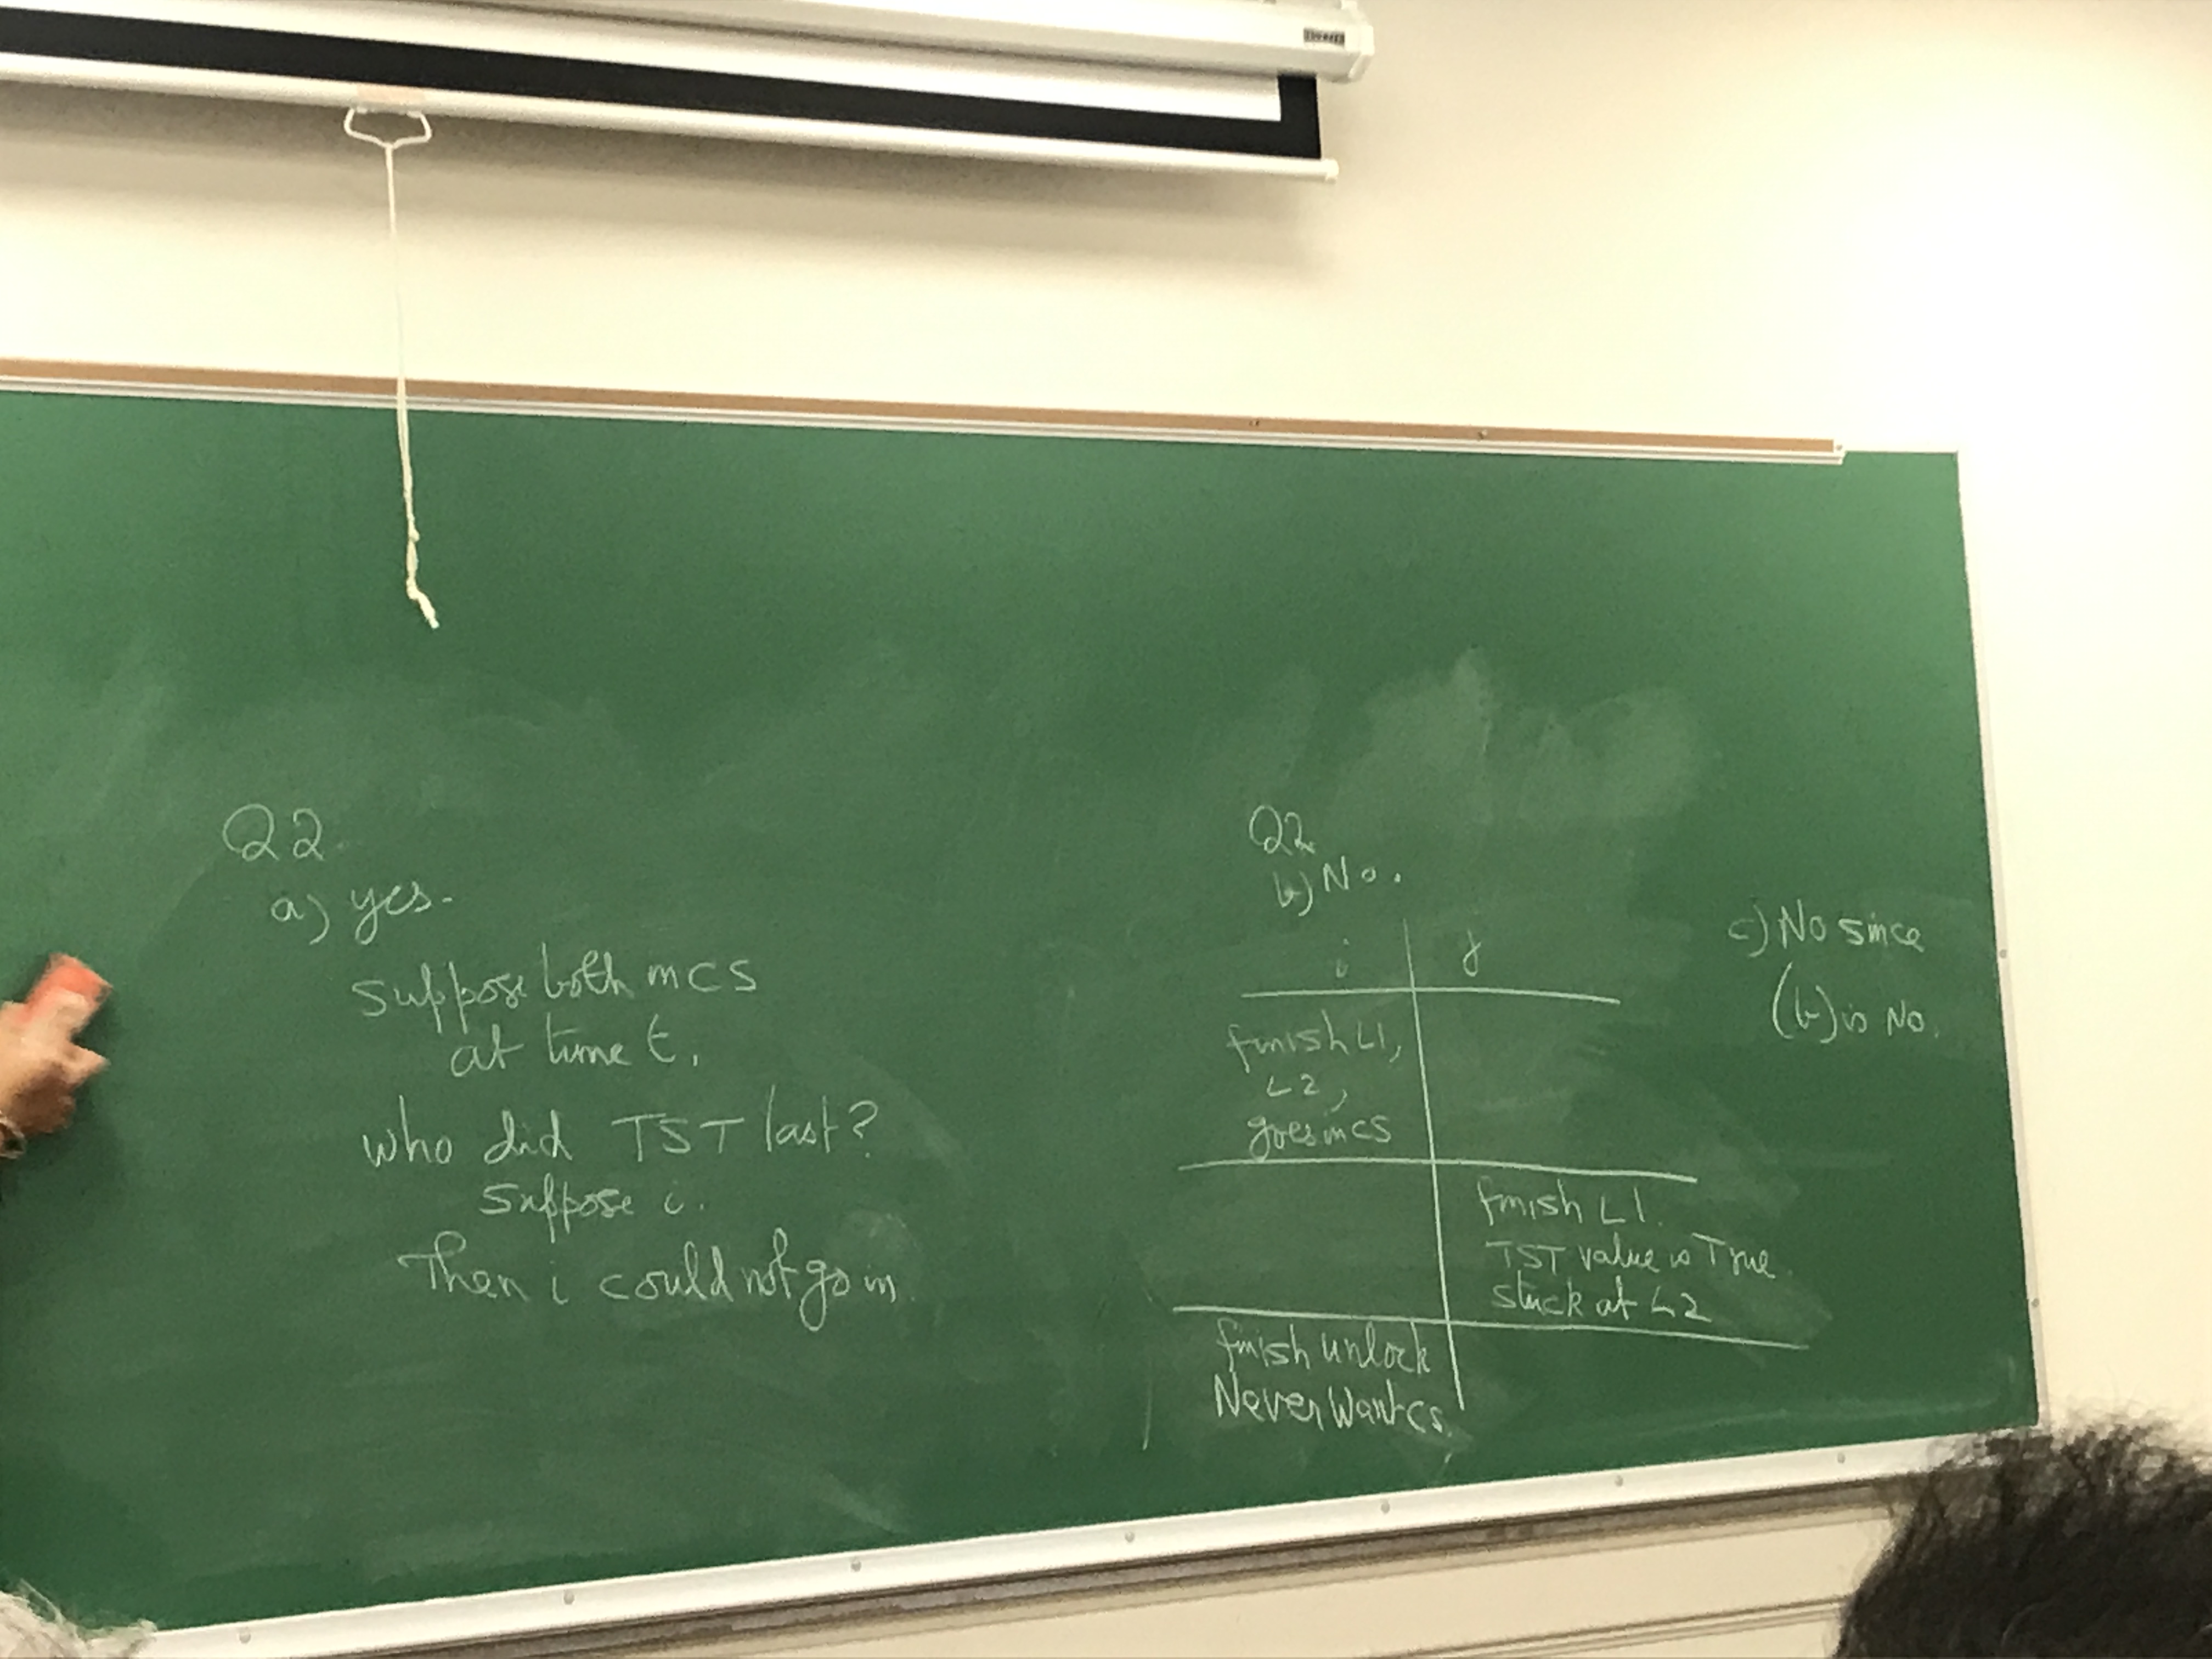 Q2
a) yes.
suppose both in CS
at time t.
who did TST last?
suppose i.
Then i could not go in.
Q2
b) No.
i j
finish L1,
L2,
goes in CS
finish L1.
TST value is True.
stuck at L2
finish unlock
Never Want CS.
c) No since
(b) is No.